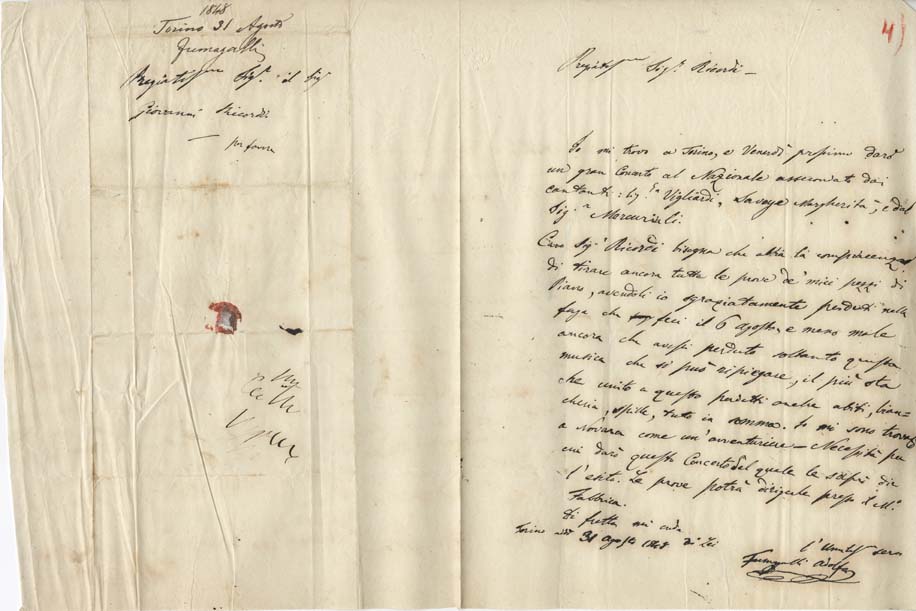 1848
Torino 31 Agosto
Fumagalli
Pregiatissmo Sigr. il Sig
Giovanni Ricordi
per favore
4)
Pregiatssmo Sigr. Ricordi —
Io mi trovo a Torino, e Venerdì prossimo darò
un gran Concerto al Nazionale assecondato dai
cantanti: Sigra Vigliardi, Savoye Margherita, e dal
Sigr Mercuriali.
Caro Sigr Ricordi bisogna che abbia la compiacenza
di tirare ancora tutte le prove de' miei pezzi di
Piano, avendoli io sgraziatamente perduti nella
fuga che feci il 6 agosto, e meno male
ancora che avessi perduto soltanto questa
musica che si può ripiegare, il più sta
che unito a questo perdetti anche abiti, bian=
cheria, spille, tutto in somma. Io mi sono trovato
a Novara come un'avventuriere — Necessità per
cui darò questo Concerto del quale le saprò dir
l'esito. Le prove potrà dirigerle presso il Mo.
Fabbrica.
Di fretta mi creda
Torino 31 Agosto 1848 di Lei
l'Umilss servo
Fumagalli Adolfo